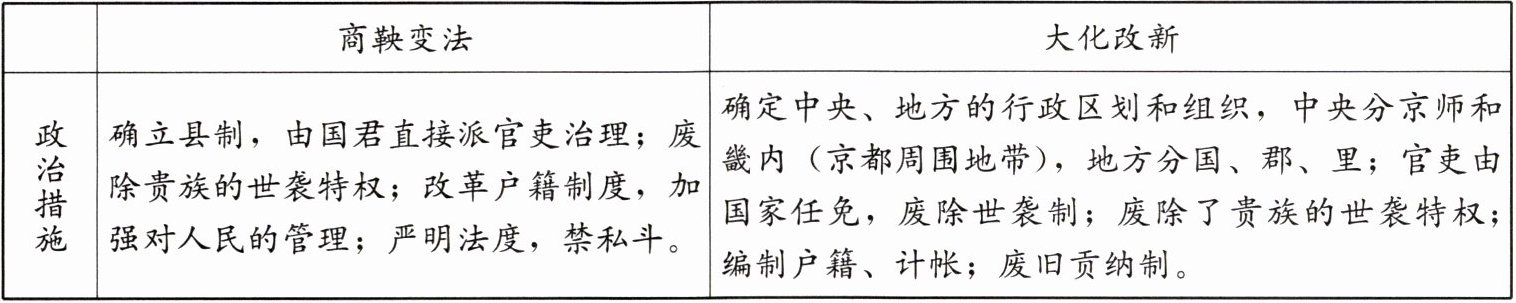 商鞅变法
大化改新
政治措施
确立县制，由国君直接派官吏治理；废
除贵族的世袭特权；改革户籍制度，加
强对人民的管理；严明法度，禁私斗。
确定中央、地方的行政区划和组织，中央分京师和
畿内（京都周围地带），地方分国、郡、里；官吏由
国家任免，废除世袭制；废除了贵族的世袭特权；
编制户籍、计帐；废旧贡纳制。